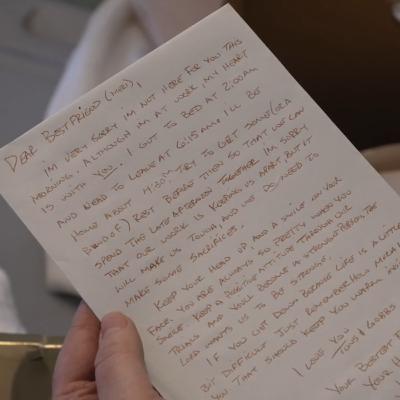 DEAR BESTFRIEND (MERI),
IM VERY SORRY I'M NOT HERE FOR YOU THIS
MORNING. ALTHOUGH IM AT WORK, MY HEART
IS WITH YOU. I GOT TO BED AT 2:00AM
AND NEED TO LEAVE AT 6:15AM. I'LL BE
HOME ABOUT 4:30PM. TRY TO GET SOME
REST BEFORE THEN SO THAT WE CAN
SPEND THE LATE AFTERNOON TOGETHER. IM SORRY
THAT OUR WORK IS KEEPING US APART BUT IT
WILL MAKE US TOUGH, AND WE DO NEED TO
MAKE SOME SACRIFICES.
KEEP YOUR HEAD UP AND A SMILE ON YOUR
FACE. YOU ARE ALWAYS SO PRETTY WHEN YOU
SMILE. KEEP A POSITIVE ATTITUDE THROUGH OUR
TRIALS AND YOU'LL BECOME A STRONGER PERSON, THE
LORD WANTS US TO BE STRONG.
IF YOU GET DOWN BECAUSE LIFE IS A LITTLE
BIT DIFFICULT JUST REMEMBER HOW MUCH I
YOU THAT SHOULD KEEP YOU WARM
I LOVE YOU
TONS & GOBBS
YOUR BESTEST F
YOUR H